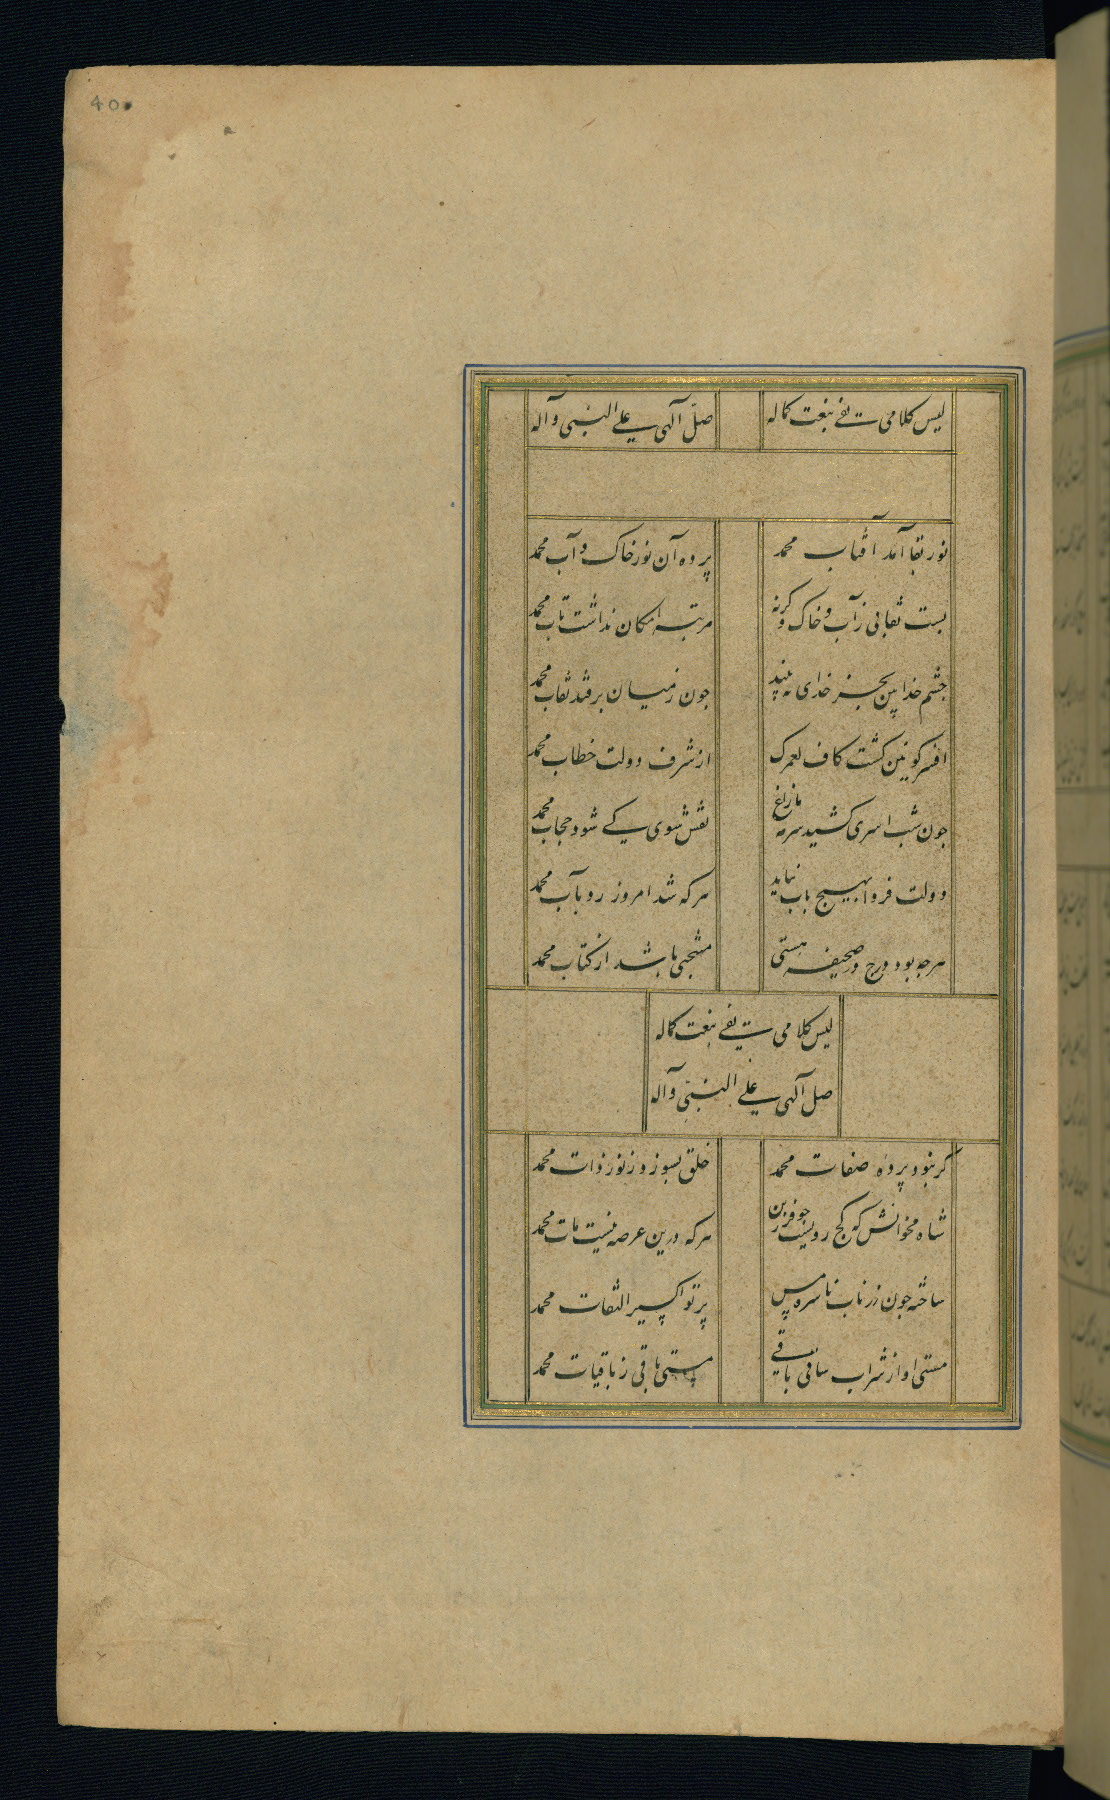 40
لیس کلامی یفی بنعت کماله صلّ آلهی علی النبی و آله
نور بقا آمد آفتاب محمد پرده آن نور خاک و آب محمد
بست نقابی ز آب و خاک و کرنه مرتبه امکان نداشت تاب محمد
چشم خدا بین بجز خدای نه بیند چون ز میان برفتد نقاب محمد
افسر کونین کشت کاف لعمرک از شرف دولت خطاب محمد
چون شب اسری کشید سرمه مازاغ نقش سوی کی شود حجاب محمد
دولت فردا بهیچ باب نیابد هر که شد امروز رد باب محمد
هرچه بود درج در صحیفه هستی منتخبی باشد از کتاب محمد
لیس کلامی یفی بنعت کماله
صل آلهی علی النبی و آله
کر نبود پرده صفات محمد خلق بسوزد ز نور ذات محمد
شاه مخوانش که کج رویست چو فرزین هر که درین عرصه نیست مات محمد
ساخته چون زر ناب ناسره مس پرتو اکسیر التفات محمد
مستی او از شراب ساقی باقی هستی باقی ز باقیات محمد